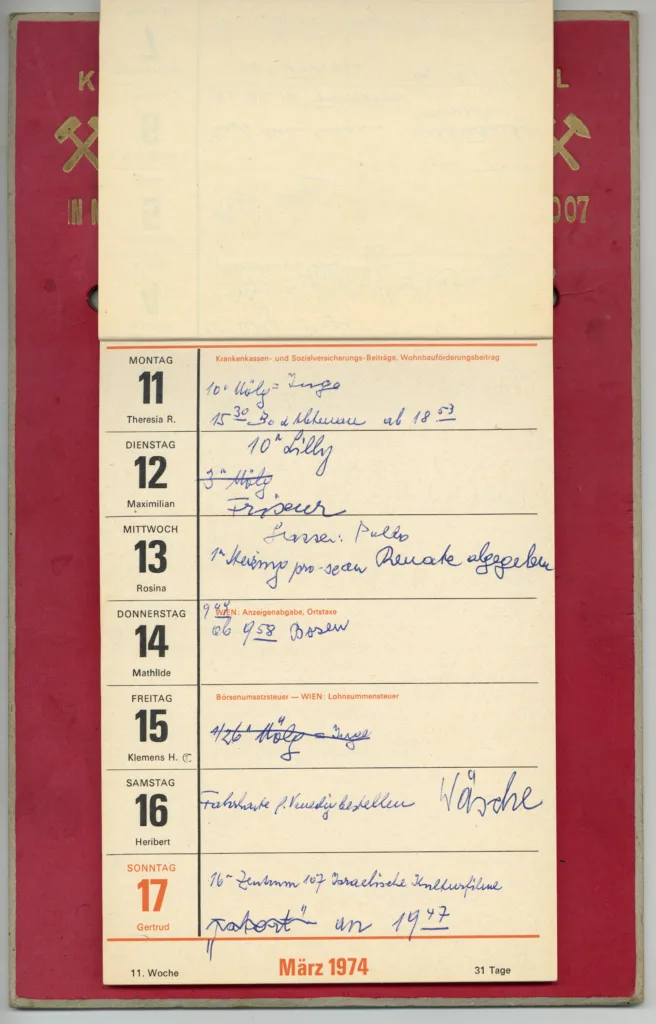 K L
IN 007
MONTAG
11
Theresia R.
Krankenkassen- und Sozialversicherungs-Beiträge, Wohnbauförderungsbeitrag
10ʰ Mölg = Inge
15 30 ab 18 53
DIENSTAG
12
Maximilian
10ʰ Lilly
3ʰ Mölg
Friseur
MITTWOCH
13
Rosina
Renate abgegeben
DONNERSTAG
14
Mathilde
WIEN: Anzeigenabgabe, Ortstaxe
9 44
ab 9 58 Bozen
FREITAG
15
Klemens H. ☾
Börsenumsatzsteuer — WIEN: Lohnsummensteuer
Mölg = Inge
SAMSTAG
16
Heribert
Fahrkarte f. Venedig bestellen Wäsche
SONNTAG
17
Gertrud
16ʰ Zentrum 107 Israelische Kulturfilme
„Tatort“ an 19 47
11. Woche
März 1974
31 Tage